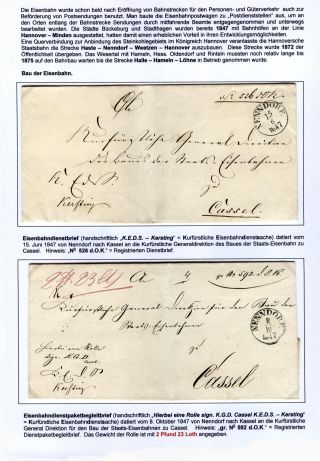 Die Eisenbahn wurde schon bald nach Eröffnung von Bahnstrecken für den Personen - und Güterverkehr auch zur
Beförderung von Postsendungen benutzt. Man baute die Eisenbahnpostwagen zu „Postdienststellen“ aus, um an
den Orten entlang der Bahnstrecke Sendungen durch mitfahrende Beamte entgegengenommen und unterwegs
bearbeitet wurden. Die Städte Bückeburg und Stadthagen wurden bereits 1847 mit Bahnhöfen an der Linie
Hannover - Minden ausgestattet, hatten damit einen erheblichen Vorteil in ihren Entwicklungsmöglichkeiten.
Eine Querverbindung zur Anbindung des Steinkohlegebiets im Königreich Hannover veranlasste die Hannoversche
Staatsbahn die Strecke Haste – Nenndorf – Weetzen – Hannover auszubauen. Diese Strecke wurde 1872 der
Öffentlichkeit übergeben. Das Wesertal mit Hameln, Hess. Oldendorf und Rinteln mussten noch relativ lange bis
1875 auf den Bahnbau warten bis die Strecke Halle – Hameln – Löhne in Betrieb genommen wurde.
Bau der Eisenbahn.
No 526 d.O.K.
NENNDORF
15
6
1847
Kurfürstliche General direction
des Baues der Staats Eisenbahnen
K. E. d. S.
Kersting
Cassel
Eisenbahndienstbrief (handschriftlich „K.E.D.S. – Kersting“ = Kurfürstliche Eisenbahndienstsache) datiert vom
15. Juni 1847 von Nenndorf nach Kassel an die Kurfürstliche Generaldirektion des Baues der Staats-Eisenbahn zu
Cassel. Hinweis: „Nº 526 d.O.K.“ = Registrierten Dienstbrief.
gr. No 592 d.O.K.
Kurfürstliche General Direktion für den Bau der
Staats-Eisenbahnen
NENNDORF
8
10
1847
Hierbei eine Rolle
sign. K.G.D.
Cassel
K.E.D.S.
Kersting
Cassel
Eisenbahndienstpaketbegleitbrief (handschriftlich „Hierbei eine Rolle sign. K.G.D. Cassel K.E.D.S. – Kersting“ =
Kurfürstliche Eisenbahndienstsache) datiert vom 8. Oktober 1847 von Nenndorf nach Kassel an die Kurfürstliche
General Direktion für den Bau der Staats-Eisenbahnen zu Cassel. Hinweis: „gr. Nº 592 d.O.K.“ = Registrierten
Dienstpaketbegleitbrief. Das Gewicht der Rolle ist mit 2 Pfund 23 Loth angegeben.